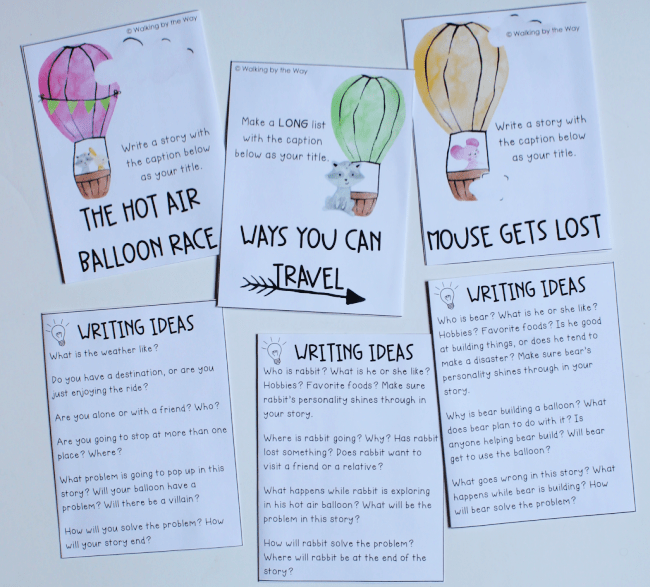 © Walking by the Way
Write a story with
the caption below
as your title.
THE HOT AIR
BALLOON RACE
© Walking by the Way
Make a LONG list
with the caption
below as your title.
WAYS YOU CAN
TRAVEL
© Walking by the Way
Write a story with
the caption below
as your title.
MOUSE GETS LOST
WRITING IDEAS
What is the weather like?
Do you have a destination, or are you
just enjoying the ride?
Are you alone or with a friend? Who?
Are you going to stop at more than one
place? Where?
What problem is going to pop up in this
story? Will your balloon have a
problem? Will there be a villain?
How will you solve the problem? How
will your story end?
WRITING IDEAS
Who is rabbit? What is he or she like?
Hobbies? Favorite foods? Make sure
rabbit's personality shines through in
your story.
Where is rabbit going? Why? Has rabbit
lost something? Does rabbit want to
visit a friend or a relative?
What happens while rabbit is exploring
in his hot air balloon? What will be the
problem in this story?
How will rabbit solve the problem?
Where will rabbit be at the end of the
story?
WRITING IDEAS
Who is bear? What is he or she like?
Hobbies? Favorite foods? Is he good
at building things, or does he tend to
make a disaster? Make sure bear's
personality shines through in your
story.
Why is bear building a balloon? What
does bear plan to do with it? Is
anyone helping bear build? Will bear
get to use the balloon?
What goes wrong in this story? What
happens while bear is building? How
will bear solve the problem?